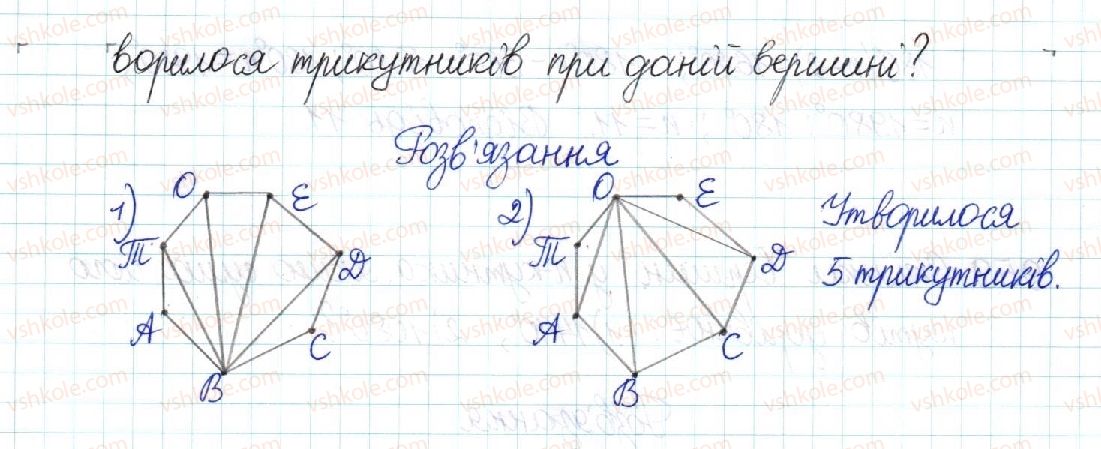 ворилося трикутників при даній вершині?
Розв'язання
1) O E T D A C B
2) O E T D A C B
Утворилося
5 трикутників.
vshkole.com